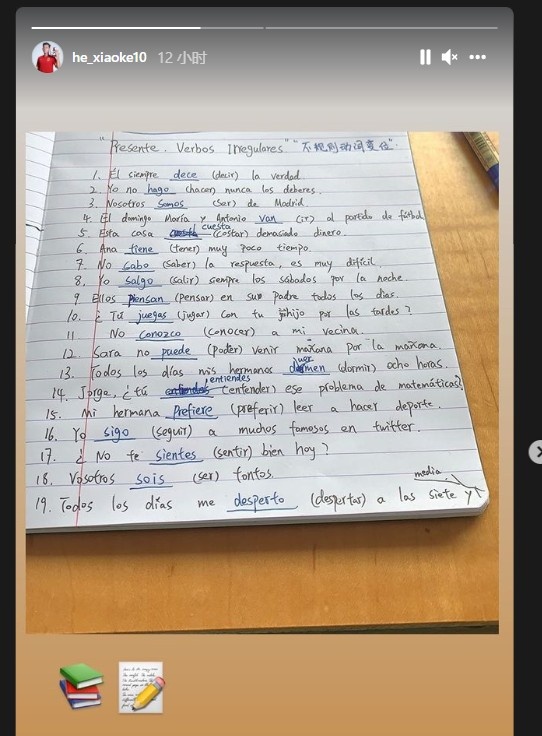 he_xiaoke10 12 小时
"Presente. Verbos Irregulares" "不规则动词变位".
1. Él siempre dece (decir) la verdad.
2. Yo no hago (hacer) nunca los deberes.
3. Nosotros somos (ser) de Madrid.
4. El domingo María y Antonio van (ir) al partido de fútbol
5. Esta casa cuesta (costar) demasiado dinero.
6. Ana tiene (tener) muy poco tiempo.
7. No sabo (saber) la respuesta, es muy difícil.
8. Yo salgo (salir) siempre los sábados por la noche
9. Ellos piensan (pensar) en su padre todos los días.
10. ¿Tú juegas (jugar) con tu hijo por las tardes?
11 No conozco (conocer) a mi vecina.
12. Sara no puede (poder) venir mañana por la mañana.
13. Todos los días mis hermanos duermen (dormir) ocho horas.
14. Jorge, ¿tú entiendes (entender) ese problema de matemáticas?
15. Mi hermana prefiere (preferir) leer a hacer deporte.
16. Yo sigo (seguir) a muchos famosos en twitter.
17. ¿No te sientes (sentir) bien hoy?
18. Vosotros sois (ser) tontos.
19. Todos los días me desperto (despertar) a las siete y media.